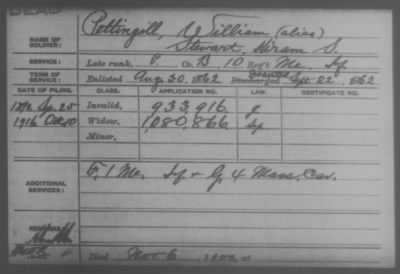 DEAD
Pettingill, William (alias)
NAME OF SOLDIER: Stewart, Hiram S.
SERVICE: Late rank, P. Co. B, 10 Reg't Me. Inf.
TERM OF SERVICE: Enlisted Aug. 30, 1862 Deserted Discharged Sept. 22, 1862
DATE OF FILING. CLASS. APPLICATION NO. LAW. CERTIFICATE NO.
Apr. 25 Invalid, 933,916
1916 Oct. 10 Widow, 1,080,866
Minor,
ADDITIONAL SERVICES: F, 1 Me. Inf. & G, 4 Mass. Cav.
REMARKS:
Died Nov. 6, 1900,